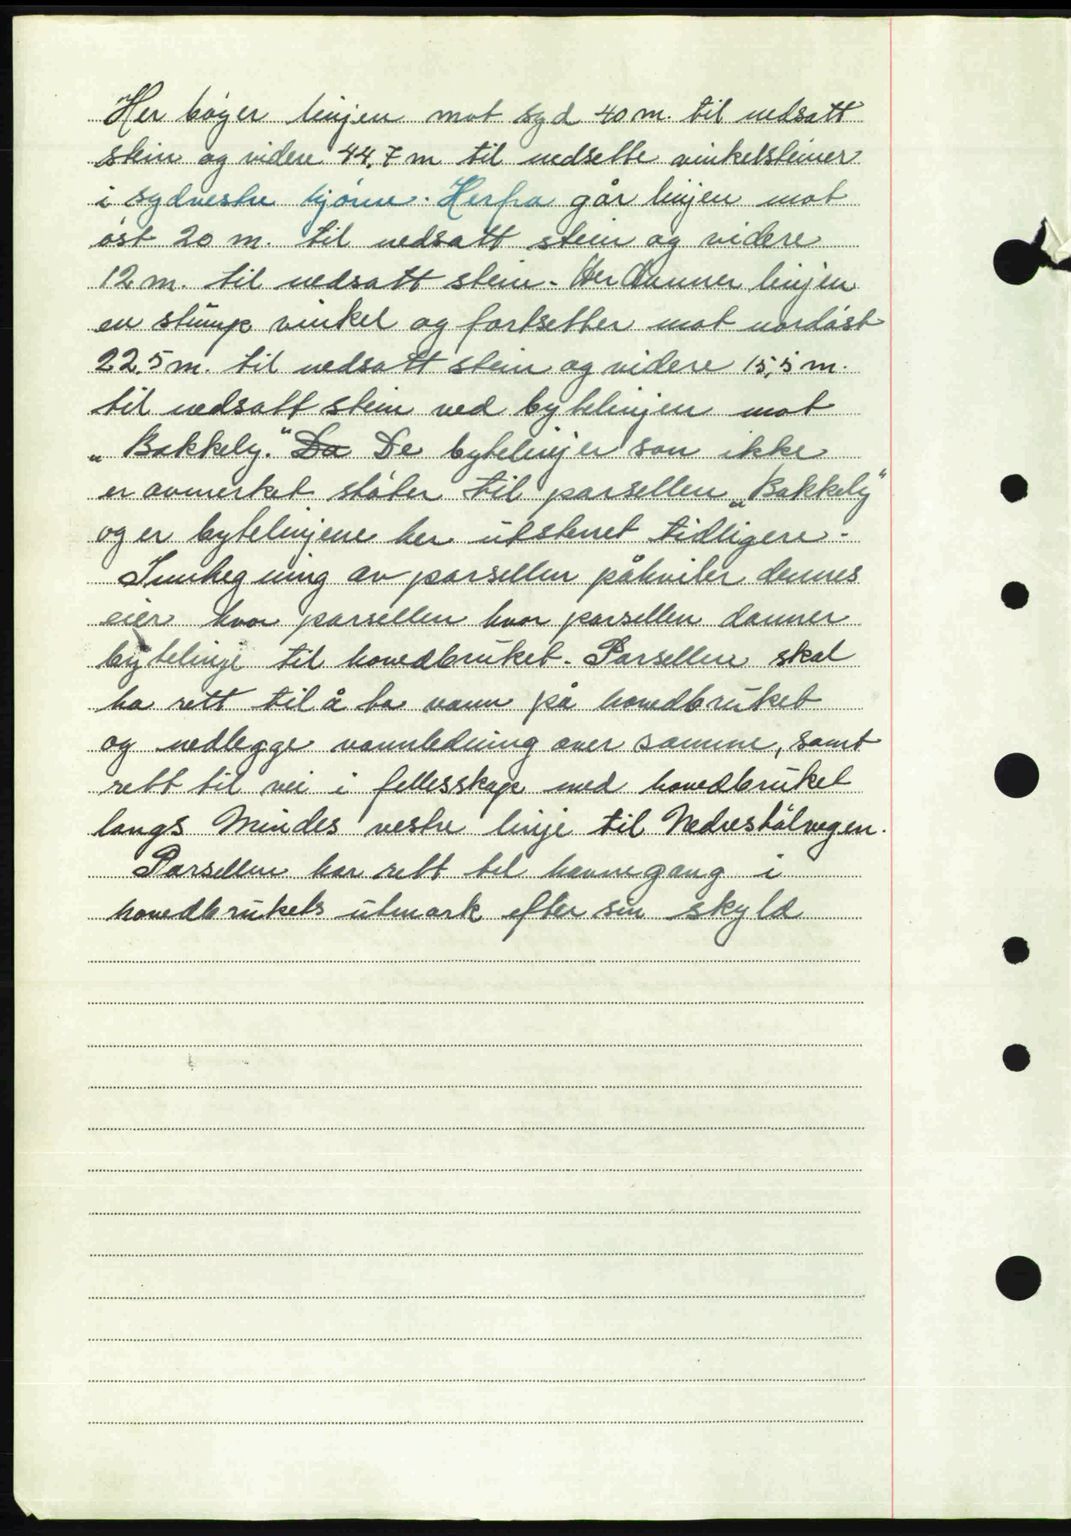 Her bøyer linjen mot syd 40 m. til nedsatt
stein og videre 44,7 m til nedsette vinkelsteiner
i sydvestre hjørne. Herfra går linjen mot
øst 20 m. til nedsatt stein og videre
12 m. til nedsatt stein. Her danner linjen
en stump vinkel og fortsetter mot nordøst
22.5 m. til nedsatt stein og videre 15,5 m.
til nedsatt stein ved bytelinjen mot
„Bakkely.“ Da De bytelinjer som ikke
er avmerket støter til parsellen „Bakkely“
og er bytelinjene her utstenet tidligere.
Innhegning av parsellen påhviler dennes
eier hvor parsellen hvor parsellen danner
bytelinje til hovedbruket. Parsellen skal
ha rett til å ta vann på hovedbruket
og nedlegge vannledning over samme, samt
rett til vei i fellesskap med hovedbruket
langs Mindes vestre linje til Nedrestålvegen.
Parsellen har rett til havnegang i
hovedbrukets utmark efter sin skyld